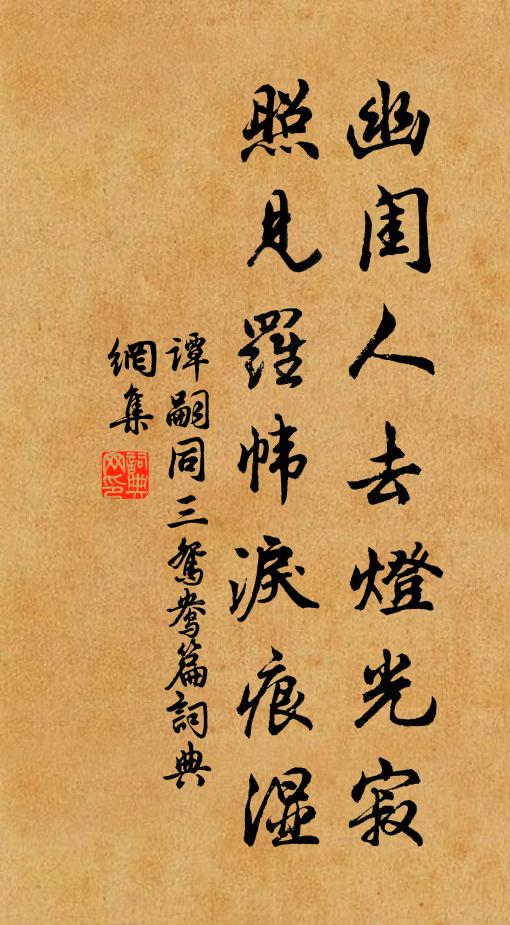 幽閨人去燈光寂
照見羅幃淚痕濕
譚嗣同三鴛鴦篇詞典
網集
詞典網印